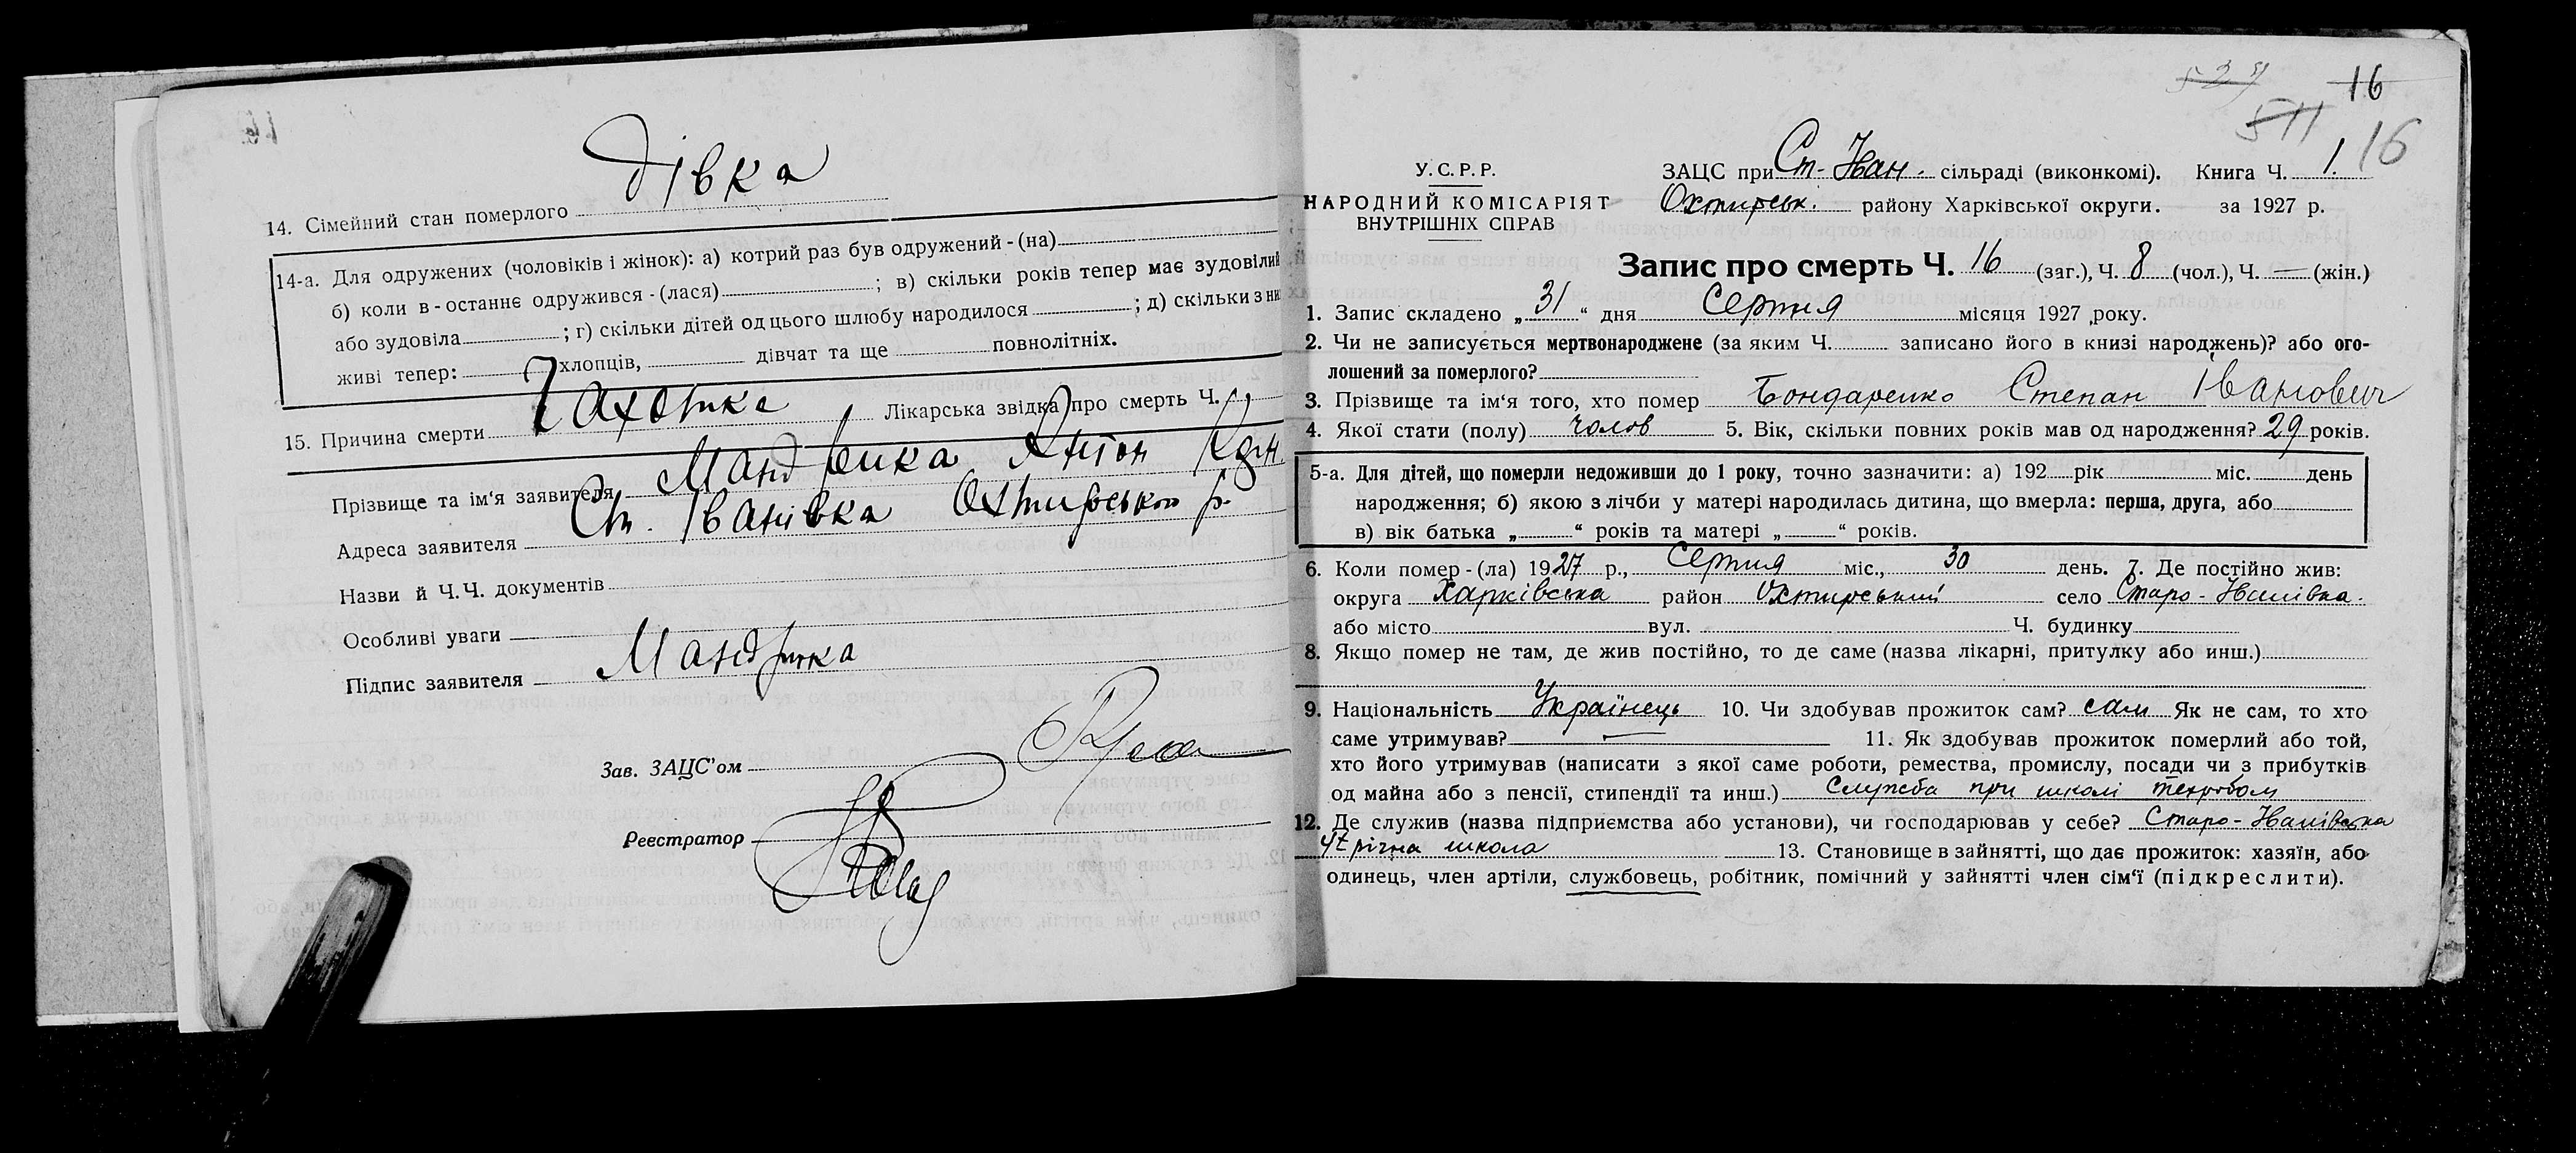 дівка
14. Сімейний стан померлого
14-а. Для одружених (чоловіків і жінок): а) котрий раз був одружений - (на)
б) коли в-останнє одружився - (лася) ; в) скільки років тепер має зудовілий
або зудовіла ; г) скільки дітей од цього шлюбу народилося ; д) скільки з ни
живі тепер: хлопців, дівчат та ще повнолітніх.
15. Причина смерти Сахотка Лікарська звідка про смерть Ч.
Прізвище та ім'я заявителя Мандрика Антон
Адреса заявителя Ст. Іванівка Охтирськой р.
Назви й Ч.Ч. документів
Особливі уваги
Підпис заявителя Мандрика
Зав. ЗАЦС'ом
Реєстратор
527 16
511 16
У.С.Р.Р.
НАРОДНИЙ КОМІСАРІЯТ
ВНУТРІШНІХ СПРАВ
ЗАЦС при Ст-Іван. сільраді (виконкомі). Книга Ч. 1.
Охтирськ. району Харківської округи. за 1927 р.
Запис про смерть Ч. 16 (заг.), Ч. 8 (чол.), Ч. — (жін.)
1. Запис складено „ 31 “ дня Серпня місяця 1927 року.
2. Чи не записується мертвонароджене (за яким Ч. записано його в книзі народжень)? або ого-
лошений за померлого?
3. Прізвище та ім'я того, хто помер Бондаренко Степан Іванович
4. Якої стати (полу) чолов 5. Вік, скільки повних років мав од народження? 29 років.
5-а. Для дітей, що померли недоживши до 1 року, точно зазначити: а) 192 рік міс. день
народження; б) якою з лічби у матері народилась дитина, що вмерла: перша, друга, або
в) вік батька „ “ років та матері „ “ років.
6. Коли помер - (ла) 1927 р., Серпня міс., 30 день. 7. Де постійно жив:
округа Харківська район Охтирський село Старо-Іванівка.
або місто вул. Ч. будинку
8. Якщо помер не там, де жив постійно, то де саме (назва лікарні, притулку або инш.)
9. Національність Українець 10. Чи здобував прожиток сам? сам Як не сам, то хто
саме утримував? — 11. Як здобував прожиток померлий або той,
хто його утримував (написати з якої саме роботи, ремества, промислу, посади чи з прибутків
од майна або з пенсії, стипендії та инш.) Служба при школі техробом
12. Де служив (назва підприємства або установи), чи господарював у себе? Старо-Іванівська
4х річна школа 13. Становище в зайнятті, що дає прожиток: хазяїн, або
одинець, член артіли, службовець, робітник, помічний у зайнятті член сім'ї (підкреслити).